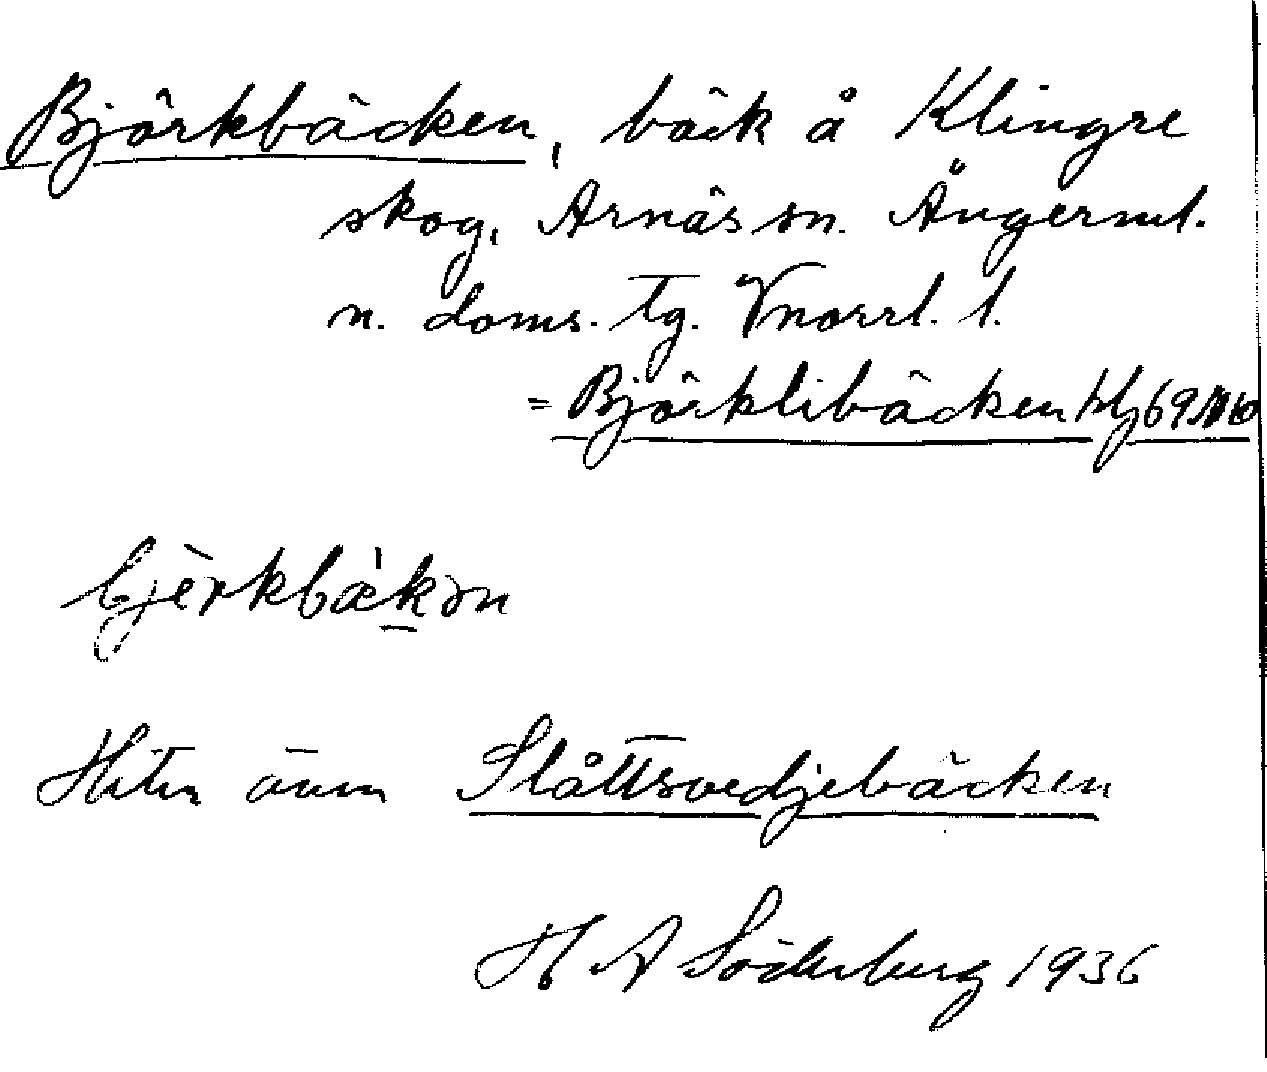 Björkbäcken, bäck å Klingre
skog, Arnäs sn. Ångerml.
n. doms. tg. Vnorrl. l.
= Björklibäcken
bjèrkbæ̀kən
även Slåttsvedjebäcken
H A Söderberg 1936